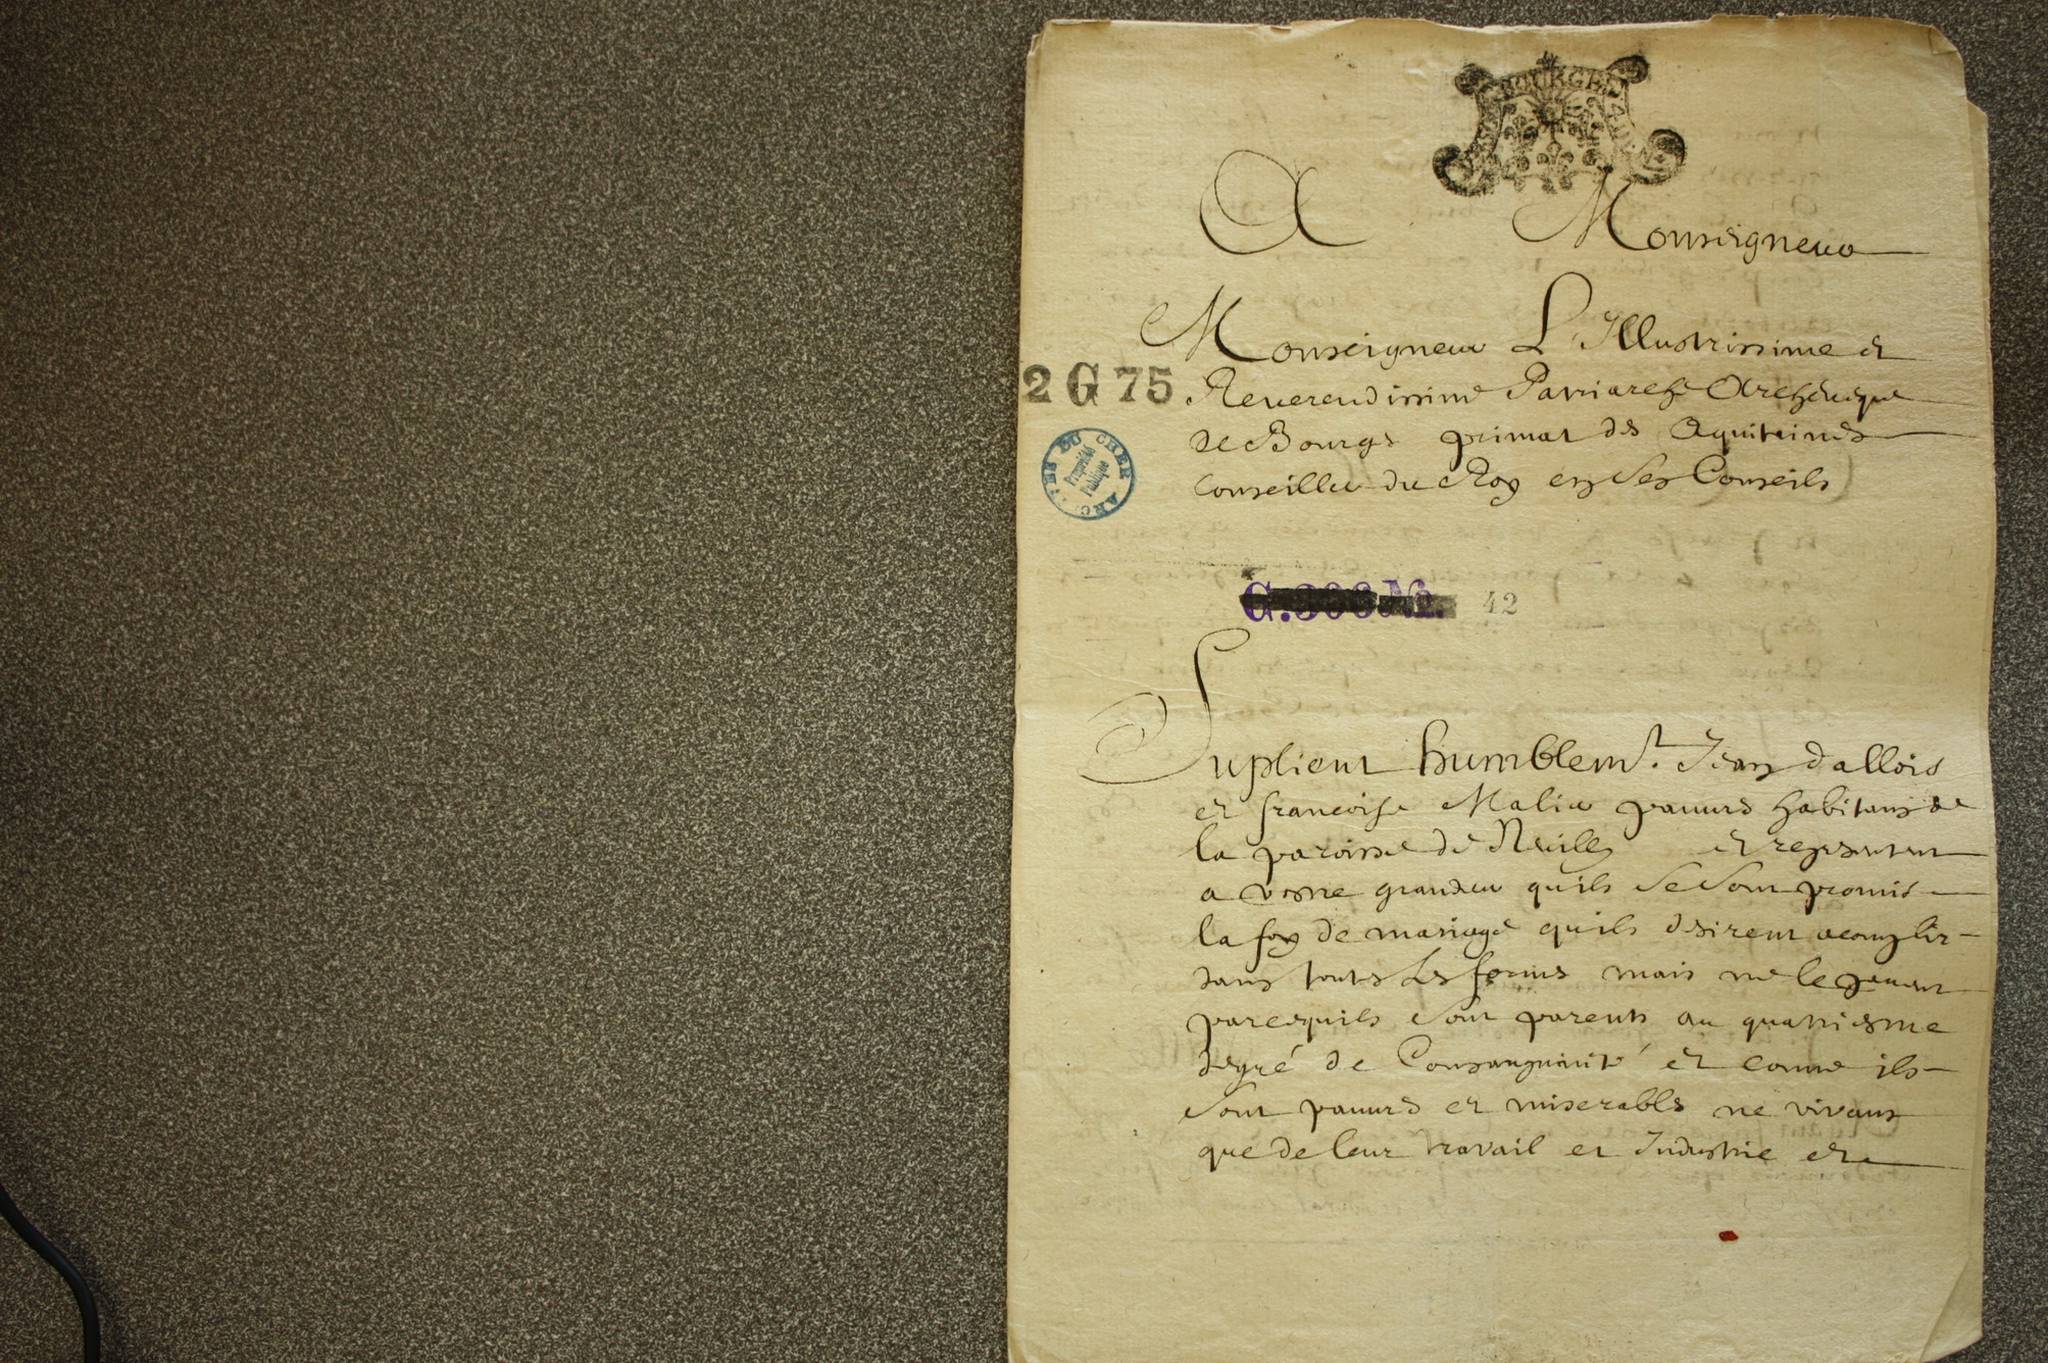 BOURGES
A Monseigneur
Monseigneur L'Illustrissime et
2 G 75.
Reuerendissime Patriarche Archeuesque
de Bourges primat des Aquitaines
Conseiller du Roy en Ses Conseils
DU CHER ARC
Propriété
Publique
G. No. 42
Suplient humblemt. Jean dallois
et francoise Malic pauures habitans de
la paroisse de Neuilly et representent
a vostre grandeur quils Se Sont promis
la foy de mariage quils desirent acomplir
dans toutes Les formes mais ne le peuuent
parcequils Sont parents au quatriesme
degré de Consanguinité et comme ils
Sont pauures et miserables ne vivans
que de leur travail et Industrie et